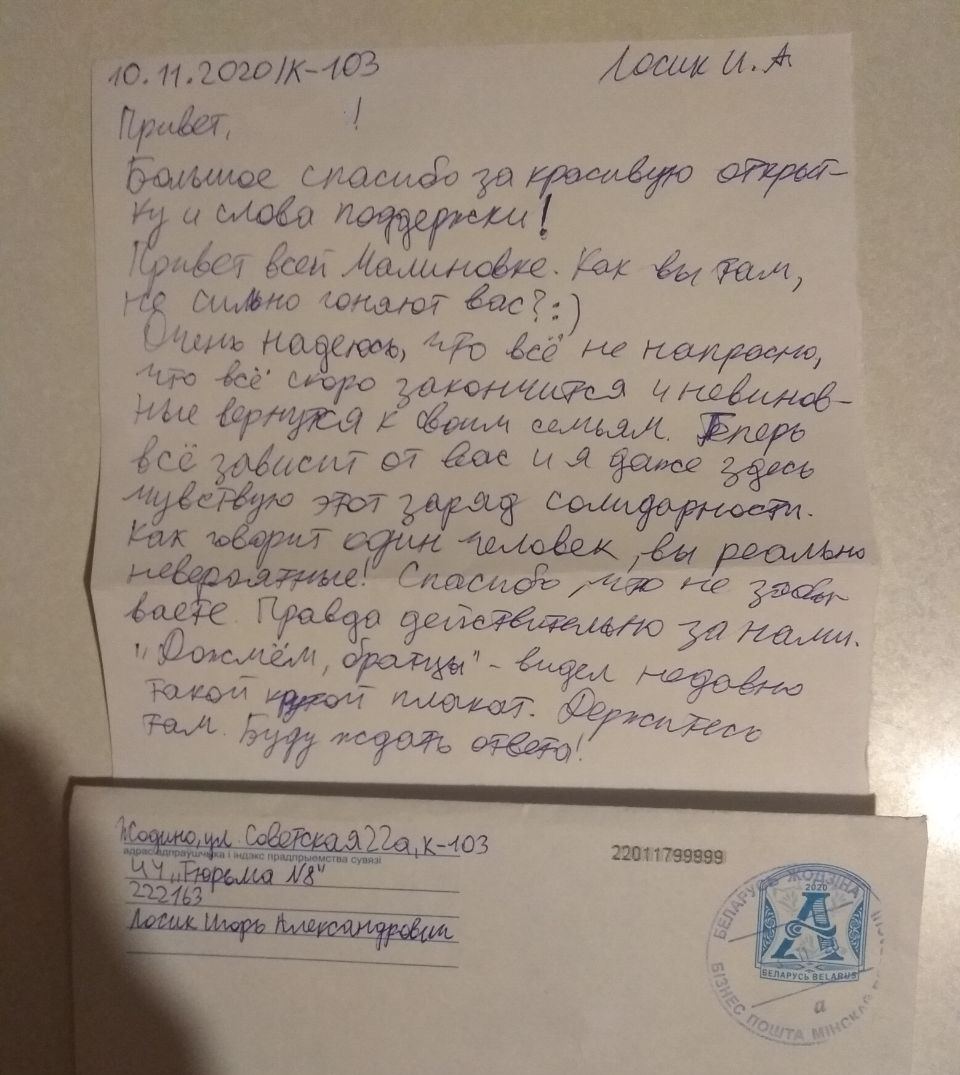 10.11.2020/К-103 Лосик И.А
Привет, !
Большое спасибо за красивую открыт-
ку и слова поддержки!
Привет всей Малиновке. Как вы там,
не сильно гоняют вас? :)
Очень надеюсь, что всё не напрасно,
что всё скоро закончится и невинов-
ные вернутся к своим семьям. Теперь
всё зависит от вас и я даже здесь
чувствую этот заряд солидарности.
Как говорит один человек, вы реально
невероятные! Спасибо, что не забы
ваете. Правда действительно за нами.
"Дожмём, братцы" - видел недавно
такой крутой плакат. Держитесь
там. Буду ждать ответа!
Жодино, ул. Советская 22а, к-103
адрас адпраўшчыка і індэкс прадпрыемства сувязі
ИУ "Тюрьма №8"
222163
Лосик Игорь Александрович
22011799999
БЕЛАРУСЬ ЖОДЗІНА
2020
А
БЕЛАРУСЬ BELARUS
а
БІЗНЕС ПОШТА МІНСКАЙ